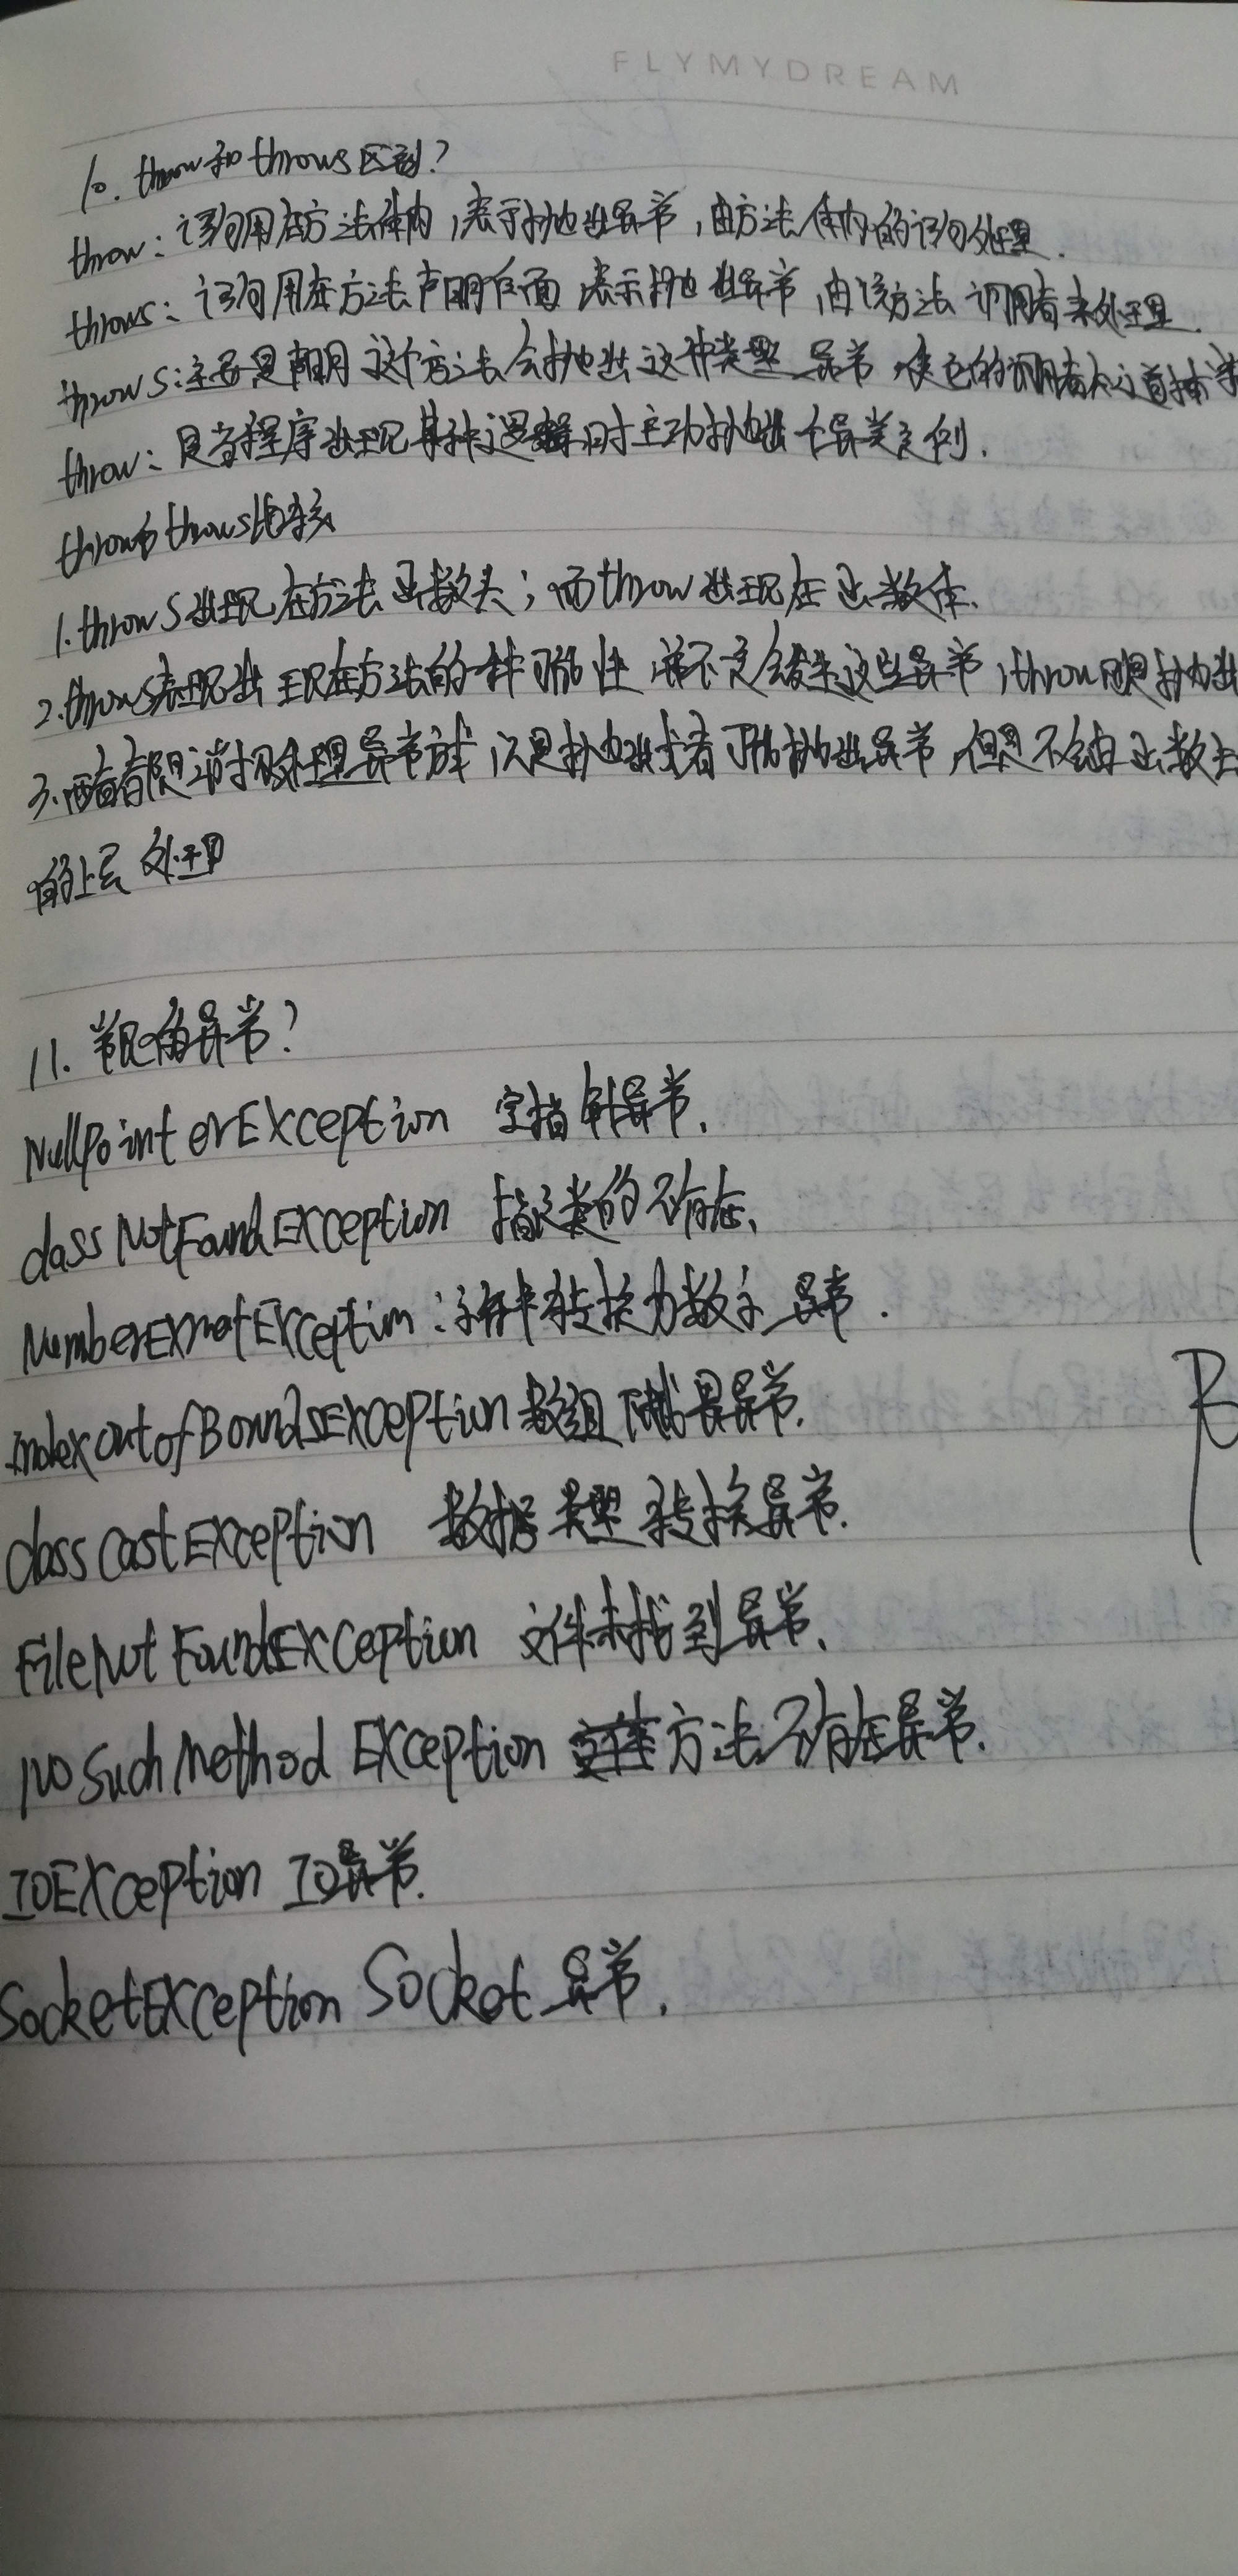 FLYMYDREAM
10. throw和throws区别?
throw: 语句用在方法体内,表示抛出异常,由方法体内的语句处理.
throws: 语句用在方法声明后面 表示抛出异常,由该方法 调用者来处理.
throws:主要是声明这个方法会抛出这种类型异常,使它的调用者知道捕
throw: 是当程序出现某种逻辑时主动抛出
throw与throws比较
1.throws出现在方法函数头; 而throw出现在函数体.
2.throws表现出现在方法的一种可能性 并不一定会发生这些异常,throw则是抛出
3.两者都是消极处理异常方式 只是抛出或者可能抛出异常,但是不会由函数去
的上层处理
11. 常见的异常?
NullPointerException 空指针异常.
classNotFoundException 指定类的不存在.
Exception: 字符串转换为数字异常.
indexoutofBoundsException 数组下标越界异常.
classcastException 数据类型转换异常.
FileNotFoundException 文件未找到异常.
NosuchMethodException 方法不存在异常.
IOException IO异常.
SocketException Socket异常.